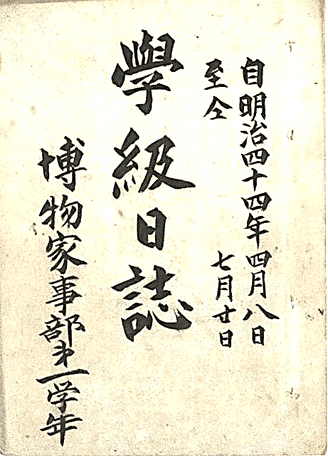 自明治四十四年四月八日
至仝 七月廿日
學級日誌
博物家事部才一学年